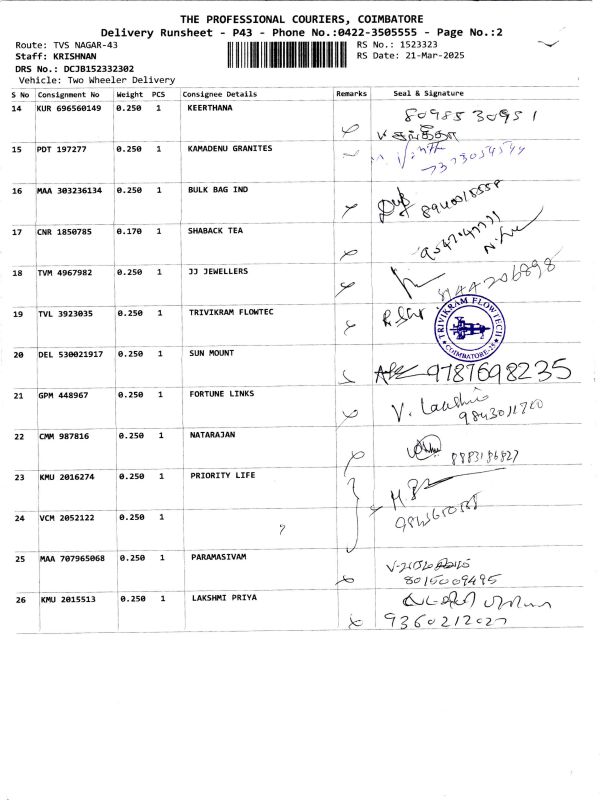 THE PROFESSIONAL COURIERS, COIMBATORE
Delivery Runsheet - P43 - Phone No.:0422-3505555 - Page No.:2
Route: TVS NAGAR-43
RS No.: 1523323
Staff: KRISHNAN
RS Date: 21-Mar-2025
DRS No.: DCJB152332302
Vehicle: Two Wheeler Delivery
S No Consignment No Weight PCS Consignee Details Remarks Seal & Signature
14 KUR 696560149 0.250 1 KEERTHANA
8098530951
15 PDT 197277 0.250 1 KAMADENU GRANITES
16 MAA 303236134 0.250 1 BULK BAG IND
17 CNR 1850785 0.170 1 SHABACK TEA
18 TVM 4967982 0.250 1 JJ JEWELLERS
8144206898
19 TVL 3923035 0.250 1 TRIVIKRAM FLOWTEC
TRIVIKRAM FLOWTECH
COIMBATORE
20 DEL 530021917 0.250 1 SUN MOUNT
9787698235
21 GPM 448967 0.250 1 FORTUNE LINKS
V. Lakshmi
22 CMM 987816 0.250 1 NATARAJAN
8883186827
23 KMU 2016274 0.250 1 PRIORITY LIFE
24 VCM 2052122 0.250 1
?
25 MAA 707965068 0.250 1 PARAMASIVAM
8015009495
26 KMU 2015513 0.250 1 LAKSHMI PRIYA
9360212027